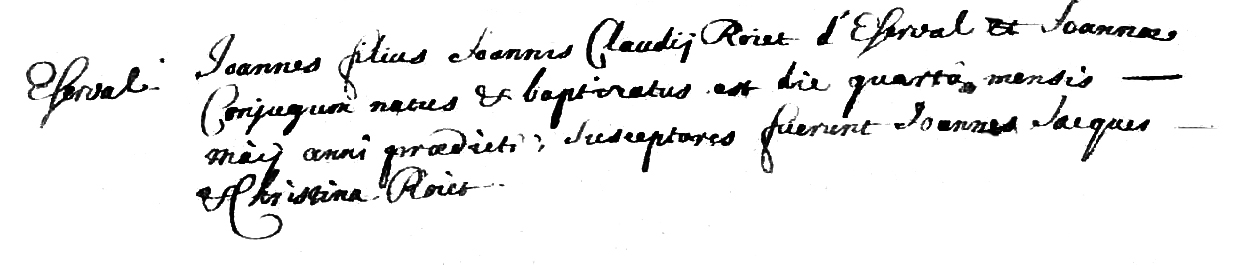 Eserval.
Joannes filius Joannis Claudij Roiet d'Eserval et Joannæ
Conjugum natus & baptizatus est die quarta mensis —
maij anni prædicti; susceptores fuerunt Joannes Jacques —
& Christina Roiet.